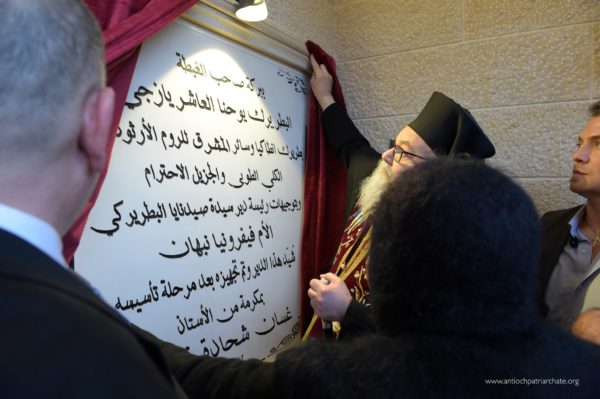 ببركة صاحب الغبطة
البطريرك يوحنا العاشر يازجي
بطريرك انطاكيا وسائر المشرق للروم الأرثوذ
الكلي الطوبى والجزيل الاحترام
وبتوجيهات رئيسة دير سيدة صيدنايا البطريركي
الأم فيفرونيا نبهان
شُيّد هذا الدير وتم تجهيزه بعد مرحلة تأسيسه
بمكرمة من الأستاذ
غسان شحادة
www.antiochpatriarchate.org